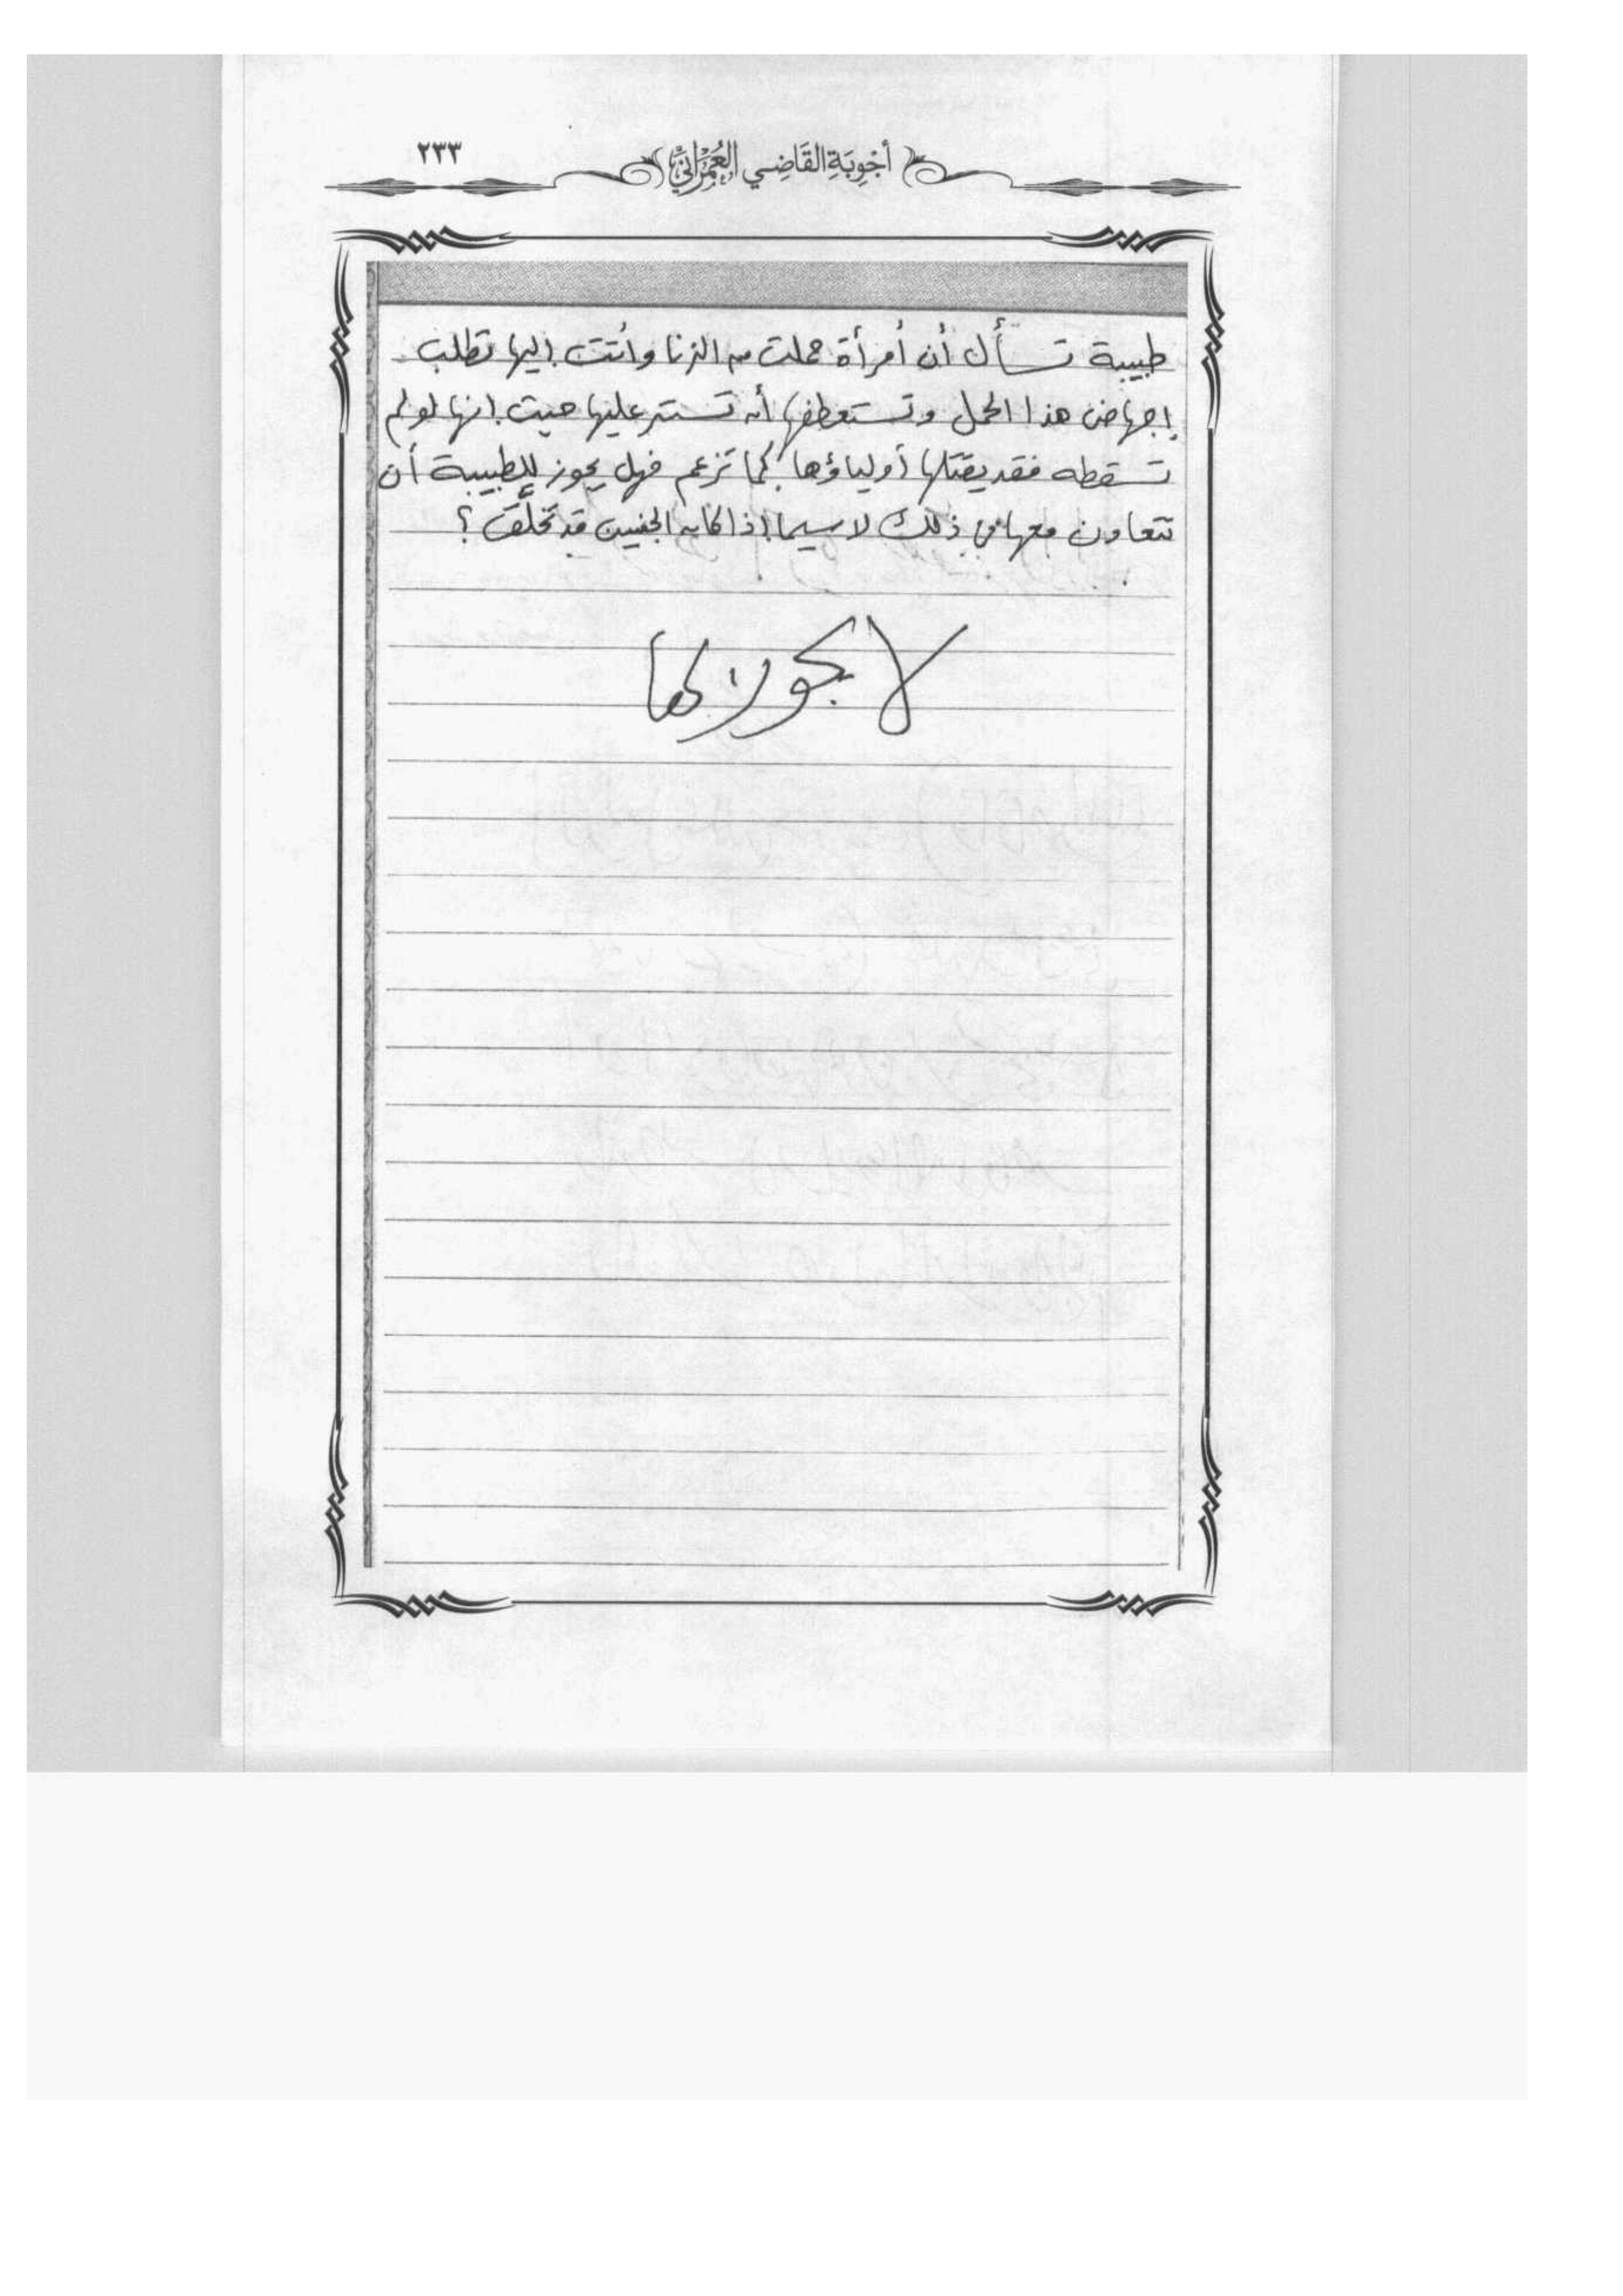 أَجْوِبَةِ القَاضِي العِمْرَانِيِّ
٢٣٣
طبيبة تسأل أن أمرأة حملت من الزنا وأتت إليها تطلب
إجهاض هذا الحمل وتستعطفها أن تستر عليها حيث إنها لو لم
تسقطه فقد يقتلها أولياؤها كما تزعم فهل يجوز للطبيبة أن
تتعاون معها في ذلك لا سيما إذا كان الجنين قد تخلَّق ؟
لا يجوز لها